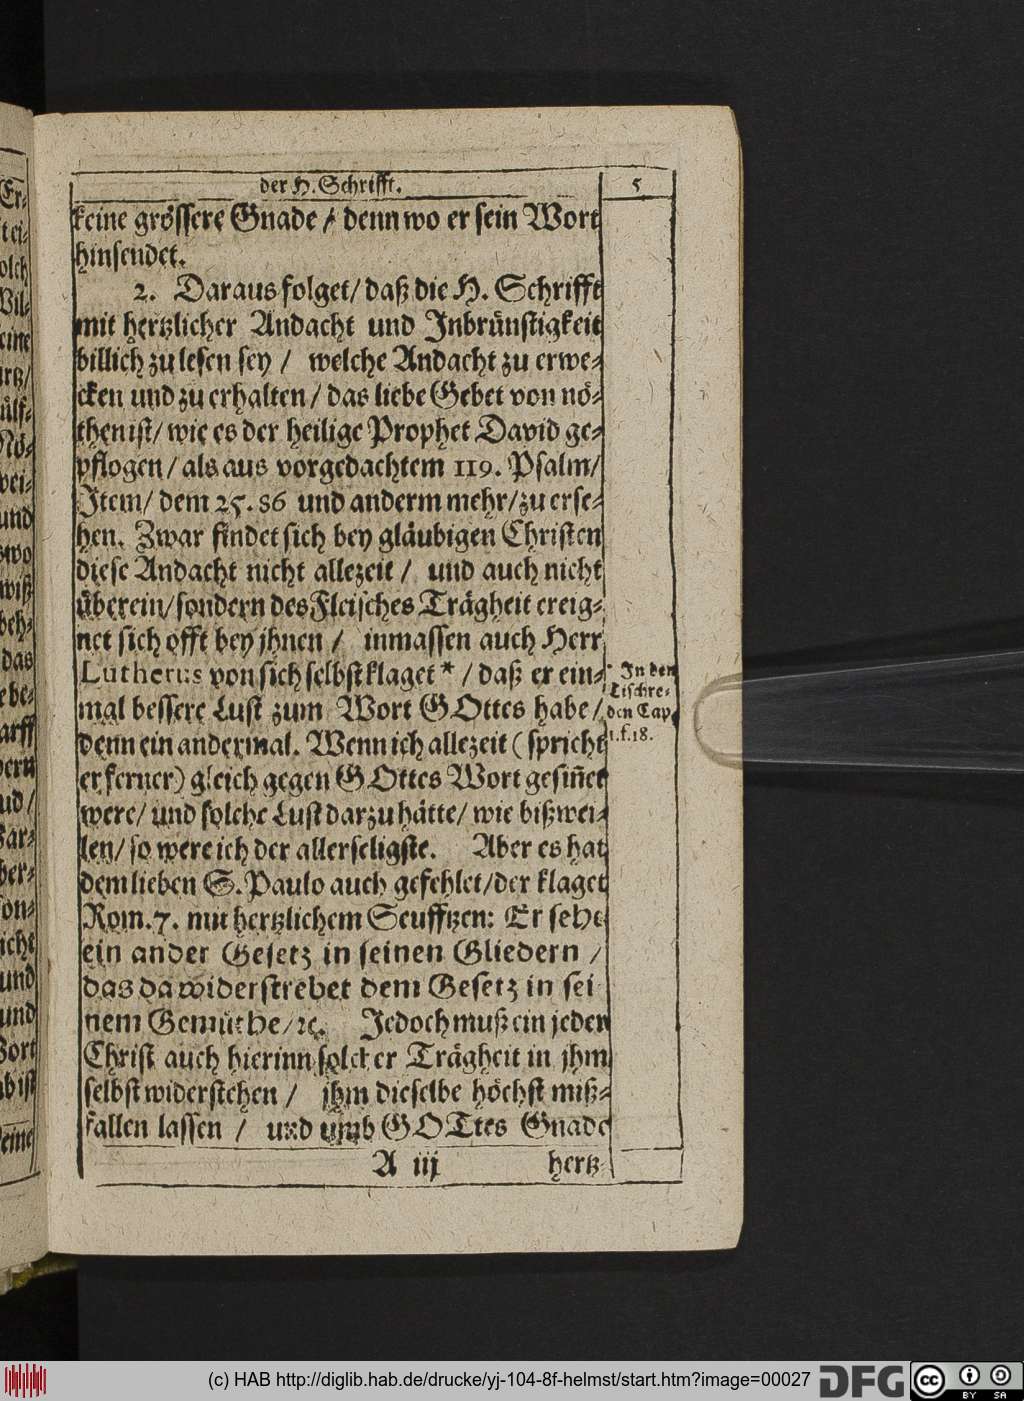 der H. Schrifft.
5
keine grössere Gnade / denn wo er sein Wort
hinsendet.
2. Daraus folget / daß die H. Schrifft
mit hertzlicher Andacht und Inbrünstigkeit
billich zu lesen sey / welche Andacht zu erwe-
cken und zu erhalten / das liebe Gebet von nö-
then ist / wie es der heilige Prophet David ge-
pflogen / als aus vorgedachtem 119. Psalm /
Item / dem 25. 86 und anderm mehr / zu erse-
hen. Zwar findet sich bey gläubigen Christen
diese Andacht nicht allezeit / und auch nicht
überein / sondern des Fleisches Trägheit ereig-
net sich offt bey jhnen / inmassen auch Herr
Lutherus von sich selbst klaget * / daß er ein-
mal bessere Lust zum Wort GOttes habe /
denn ein andermal. Wenn ich allezeit ( spricht
er ferner) gleich gegen GOttes Wort gesiñet
were / und solche Lust darzu hätte / wie bißwei-
len / so were ich der allerseligste. Aber es hat
dem lieben S. Paulo auch gefehlet / der klaget
Rom. 7. mit hertzlichem Seufftzen: Er sehe
ein ander Gesetz in seinen Gliedern /
das da widerstrebet dem Gesetz in sei
nem Gemüthe / ꝛc. Jedoch muß ein jeder
Christ auch hierinn solcher Trägheit in jhm
selbst widerstehen / jhm dieselbe höchst miß-
fallen lassen / und umb GOTtes Gnade
A iij
hertz-
* In den
Tischre-
den Cap.
1. f. 18.
(c) HAB http://diglib.hab.de/drucke/yj-104-8f-helmst/start.htm?image=00027
DFG
cc
BY SA